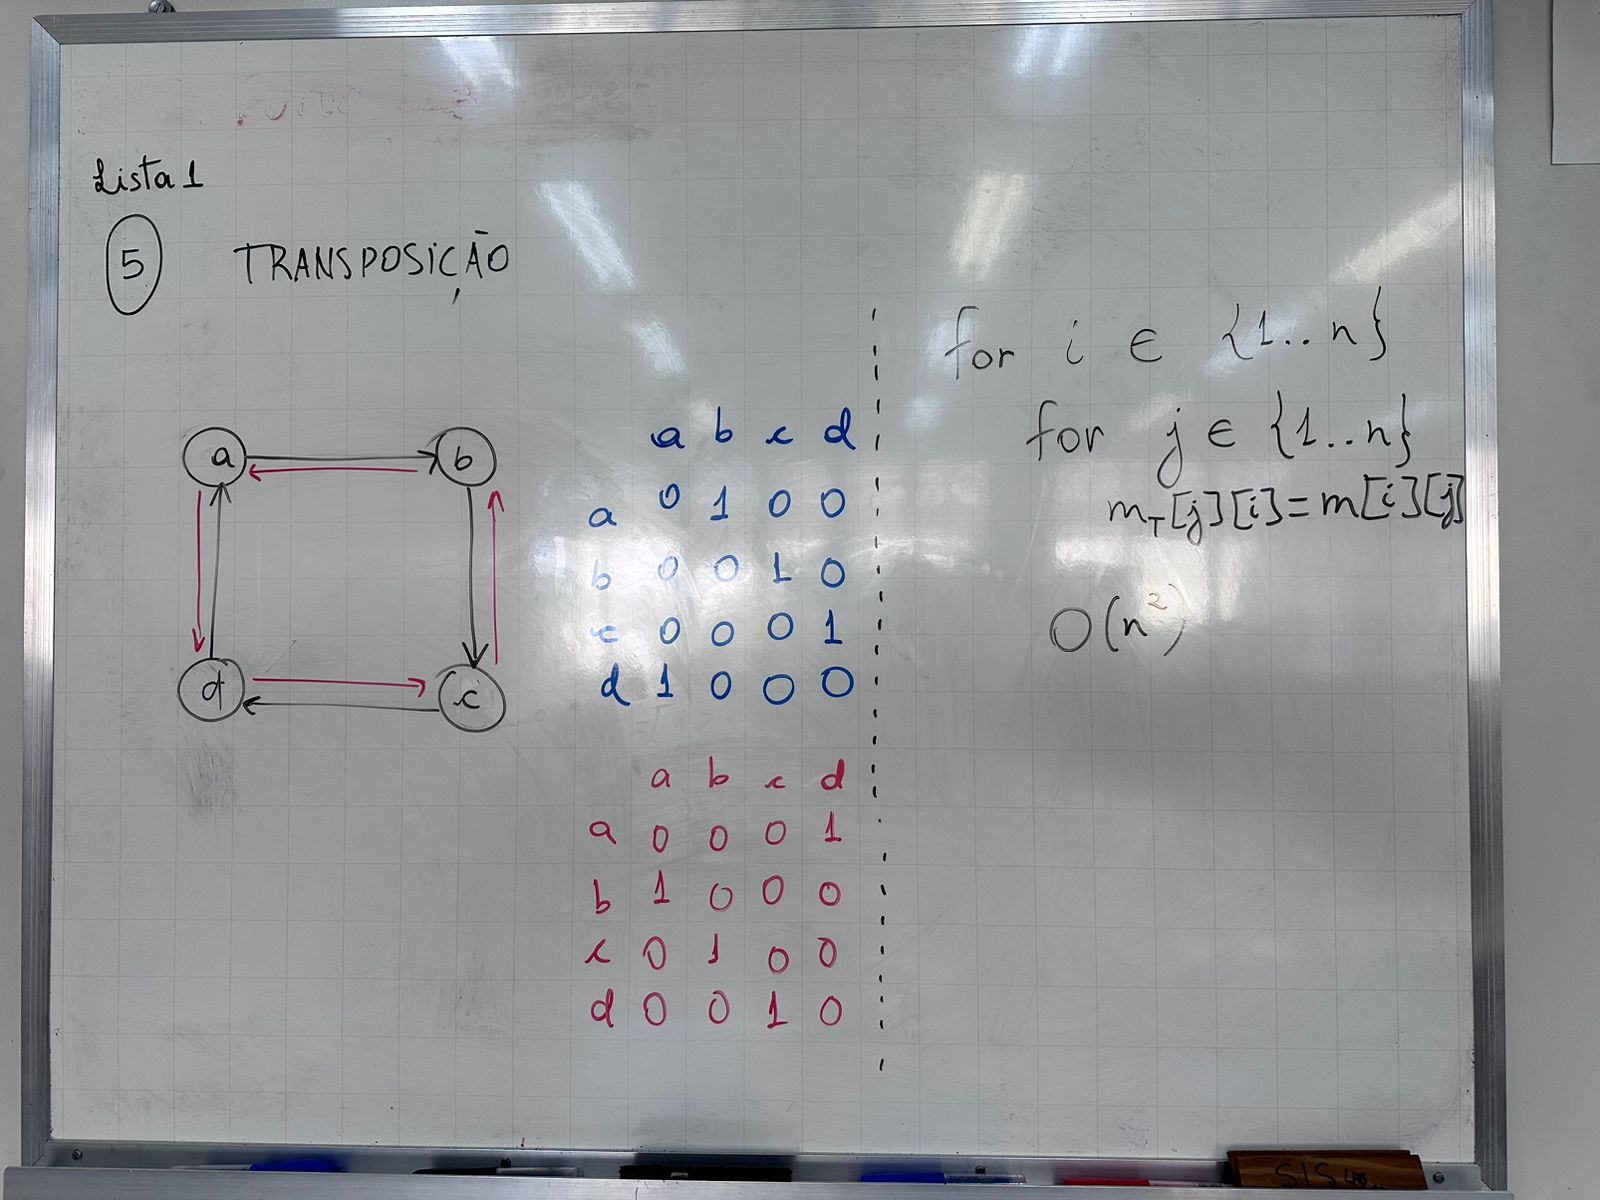 Lista 1
5 TRANSPOSIÇÃO
a b
d c
a b c d
a 0 1 0 0
b 0 0 1 0
c 0 0 0 1
d 1 0 0 0
a b c d
a 0 0 0 1
b 1 0 0 0
c 0 1 0 0
d 0 0 1 0
for i ∈ {1..n}
for j ∈ {1..n}
m_T[j][i]=m[i][j]
O(n²)